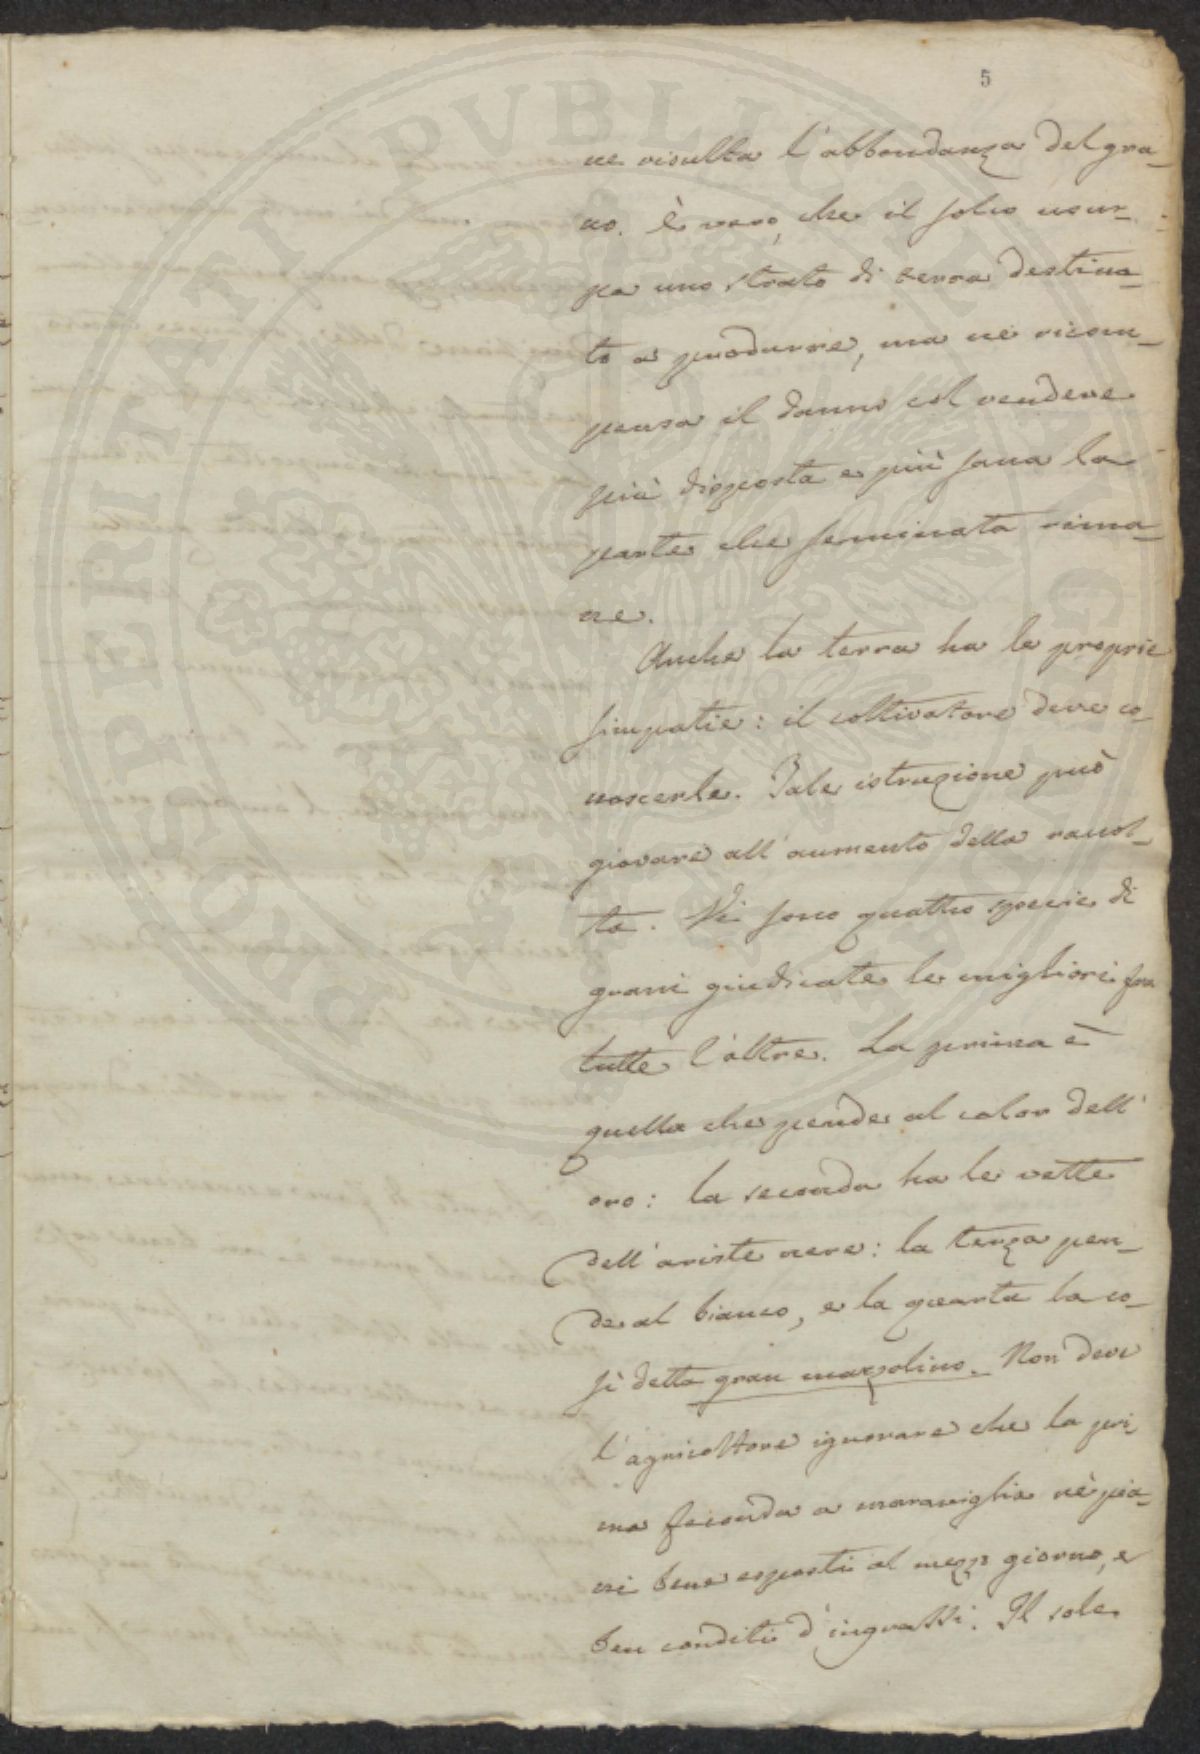 5
ne risulta l'abbondanza del gra-
no. È vero, che il solco usur-
pa uno strato di terra destina-
to a produrre, ma ne ricom-
pensa il danno col rendere
più disposta e più sana la
parte che seminata rima-
ne.
Anche la terra ha le proprie
simpatie: il coltivatore deve co-
noscerle. Tale istruzione può
giovare all'aumento della raccol-
ta. Vi sono quattro specie di
grani giudicate le migliori fra
tutte l'altre. La prima è
quella che pende al color dell'
oro: la seconda ha le vette
dell'ariste nere: la terza pen-
de al bianco, e la quarta la co-
sì detta gran marzolino. Non deve
l'agricoltore ignorare che la pri-
ma feconda a maraviglia nè pia-
ni bene esposti al mezzo giorno, e
ben conditi d'ingrassi. Il sole
PROSPERITATI PVBLICAE